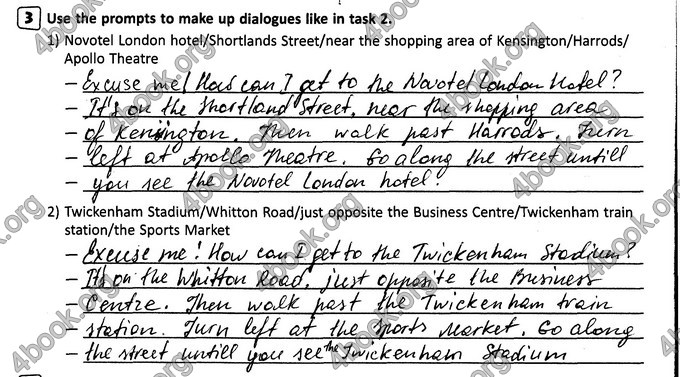 3 Use the prompts to make up dialogues like in task 2.
1) Novotel London hotel/Shortlands Street/near the shopping area of Kensington/Harrods/
Apollo Theatre
– Excuse me! How can I get to the Novotel London hotel?
– It's on the Shortland Street, near the shopping area
– of Kensington. Then walk past Harrods. Turn
– left at Apollo Theatre. Go along the street untill
– you see the Novotel London hotel.
2) Twickenham Stadium/Whitton Road/just opposite the Business Centre/Twickenham train
station/the Sports Market
– Excuse me! How can I get to the Twickenham Stadium?
– It's on the Whitton Road, just opposite the Business
– Centre. Then walk past the Twickenham train
– station. Turn left at the Sports Market. Go along
– the street untill you see the Twickenham Stadium
4book.org